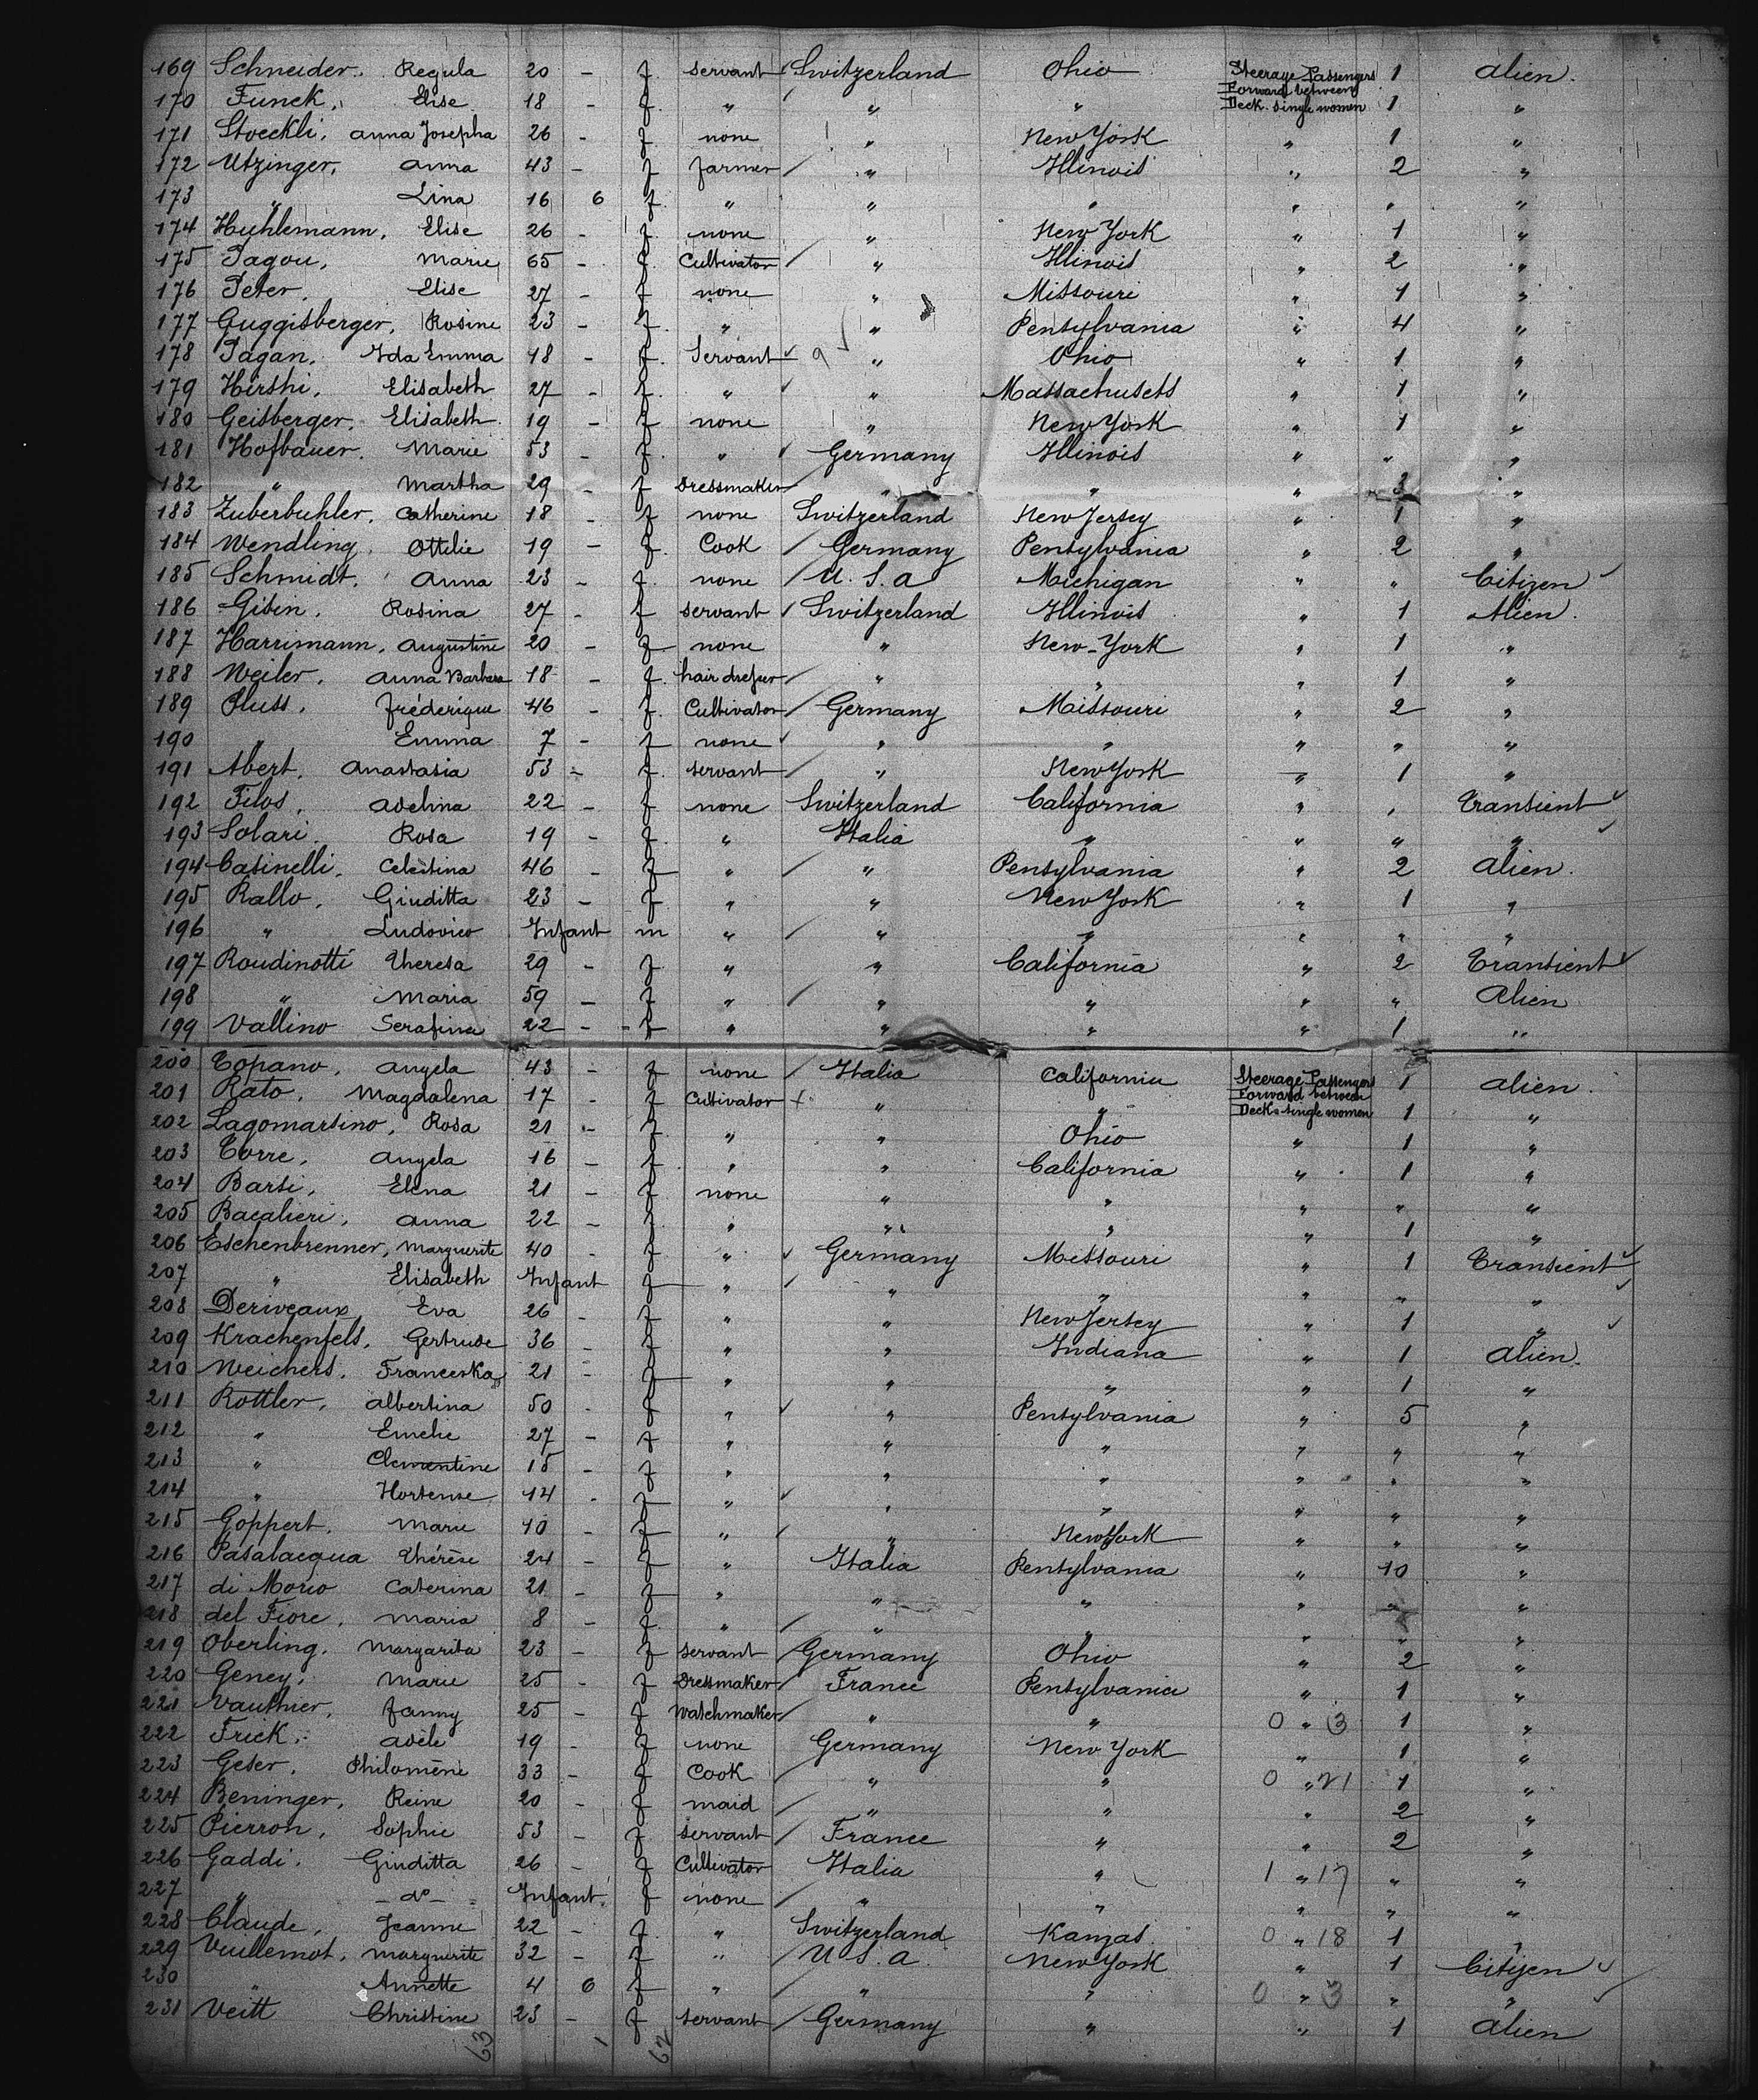 169 Schneider, Regula 20 - f. servant Switzerland Ohio Steerage Passengers Forward between Deck. single women 1 alien.
170 Funck, Elise 18 - f. " " " 1 "
171 Stoeckli, anna Josepha 26 - f. none " New York " 1 "
172 Utzinger, anna 43 - f farmer " Illinois " 2 "
173 " Lina 16 6 f. " " " " " "
174 Huhlemann, Elise 26 - f. none " New York " 1 "
175 Pagou, Marie 65 - f. Cultivator " Illinois " 2 "
176 Peter, Elise 27 - f none " Missouri " 1 "
177 Guggisberger, Rosine 23 - f. " " Pensylvania " 4 "
178 Pagan, Ida Emma 18 - f. Servant " Ohio " 1 "
179 Hirshi, Elisabeth 27 - f. " " Massachusets " 1 "
180 Geisberger, Elisabeth 19 - f none " New York " 1 "
181 Hofbauer, Marie 53 - f. " Germany Illinois " " "
182 " Martha 29 - f Dressmaker " " " 3 "
183 Zuberbuhler, Catherine 18 - f none Switzerland New Jersey " 1 "
184 Wendling, Ottilie 19 - f. Cook Germany Pensylvania " 2 "
185 Schmidt, Anna 23 - f. none U. S. a Michigan " " Citizen
186 Gisin, Rosina 27 - f servant Switzerland Illinois " 1 Alien.
187 Harrimann, Augustine 20 - f none " New-York " 1 "
188 Weiler, anna Barbara 18 - f. hair dresser " " " 1 "
189 Pluss, Fréderique 46 - f. Cultivator Germany Missouri " 2 "
190 " Emma 7 - f none " " " " "
191 Abert, Anastasia 53 - f. servant " New York " 1 "
192 Filos, Adelina 22 - f none Switzerland California " " Transient
193 Solari, Rosa 19 - f. " Italia " " " "
194 Casinelli, Celestina 46 - f " " Pensylvania " 2 alien.
195 Rallo, Giuditta 23 - f. " " New York " 1 "
196 " Ludovico Infant m " " " " " "
197 Roudinotti Theresa 29 - f. " " California " 2 Transient
198 " Maria 59 - f " " " " " Alien
199 Vallino Serafina 22 - f " " " " 1 "
200 Topano, Angela 43 - f none Italia California Steerage Passengers Forward between Decks single women 1 alien.
201 Rato, Magdalena 17 - f Cultivator " " 1 "
202 Lagomarsino, Rosa 21 - f " " Ohio " 1 "
203 Torre, Angela 16 - f. " " California " 1 "
204 Barsi, Elena 21 - f none " " " " "
205 Bacalieri, Anna 22 - f. " " " " 1 "
206 Eschenbrenner, Marguerite 40 - f " Germany Missouri " 1 Transient
207 " Elisabeth Infant f " " " " " "
208 Deriveaux Eva 26 - f " " New Jersey " 1 "
209 Krachenfels, Gertrude 36 - f " " Indiana " 1 alien.
210 Weichers, Franceska 21 - f " " " " 1 "
211 Rottler, Albertina 50 - f " " Pensylvania " 5 "
212 " Emelie 27 - f " " " " " "
213 " Clementine 15 - f " " " " " "
214 " Hortense 14 - f " " " " " "
215 Goppert, Marie 40 - f " " New York " " "
216 Pasalacqua Thérèse 24 - f " Italia Pensylvania " 10 "
217 di Morio Caterina 21 - f " " " " " "
218 del Fiore, Maria 8 - f. " " " " " "
219 Oberling, Margarita 23 - f servant Germany Ohio " 2 "
220 Geney, Marie 25 - f Dressmaker France Pensylvania " 1 "
221 Vauthier, Fanny 25 - f Watchmaker " " 0 " 3 1 "
222 Frick, Adèle 19 - f none Germany New York " 1 "
223 Geser, Philomène 33 - f Cook " " 0 " 21 1 "
224 Beninger, Reine 20 - f maid " " " 2 "
225 Pierron, Sophie 53 - f servant France " " 2 "
226 Gaddi, Giuditta 26 - f Cultivator Italia " 1 " 17 " "
227 " - do - Infant f none " " " " "
228 Claude, Jeanne 22 - f. " Switzerland Kanzas 0 " 18 1 "
229 Vuillemot, Marguerite 32 - f " U S. a. New York " 1 Citizen
230 " Annette 4 6 f " " " 0 " 3 " "
231 Veitt Christine 23 - f servant Germany " " 1 alien
63 1 62